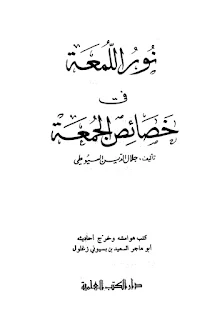 نور اللمعة
في
خصائص الجمعة
تأليف: جلال الدين السيوطي
كتب هوامشه وخرج أحاديثه
أبو هاجر السعيد بن بسيوني زغلول
دار الكتب العلمية